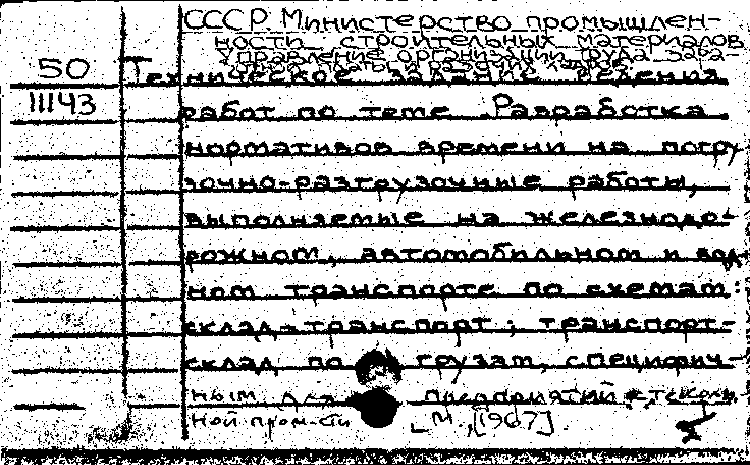 СССР Министерство промышлен-
ности строительных материалов
Управление организации труда зара-
50
Техническое задание ведения
11143
работ по теме „Разработка
нормативов времени на погру-
зочно-разгрузочные работы,
выполняемые на железнодо-
рожном, автомобильном и вод-
ном транспорте по схемам:
склад-транспорт; транспорт-
склад по грузам, специфич-
ным для предприятий стеколь-
ной пром-сти М., [1967].